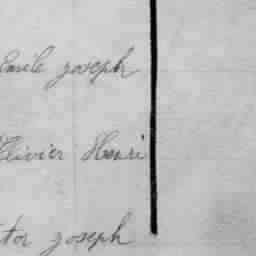 Emile joseph
Olivier Henri
joseph